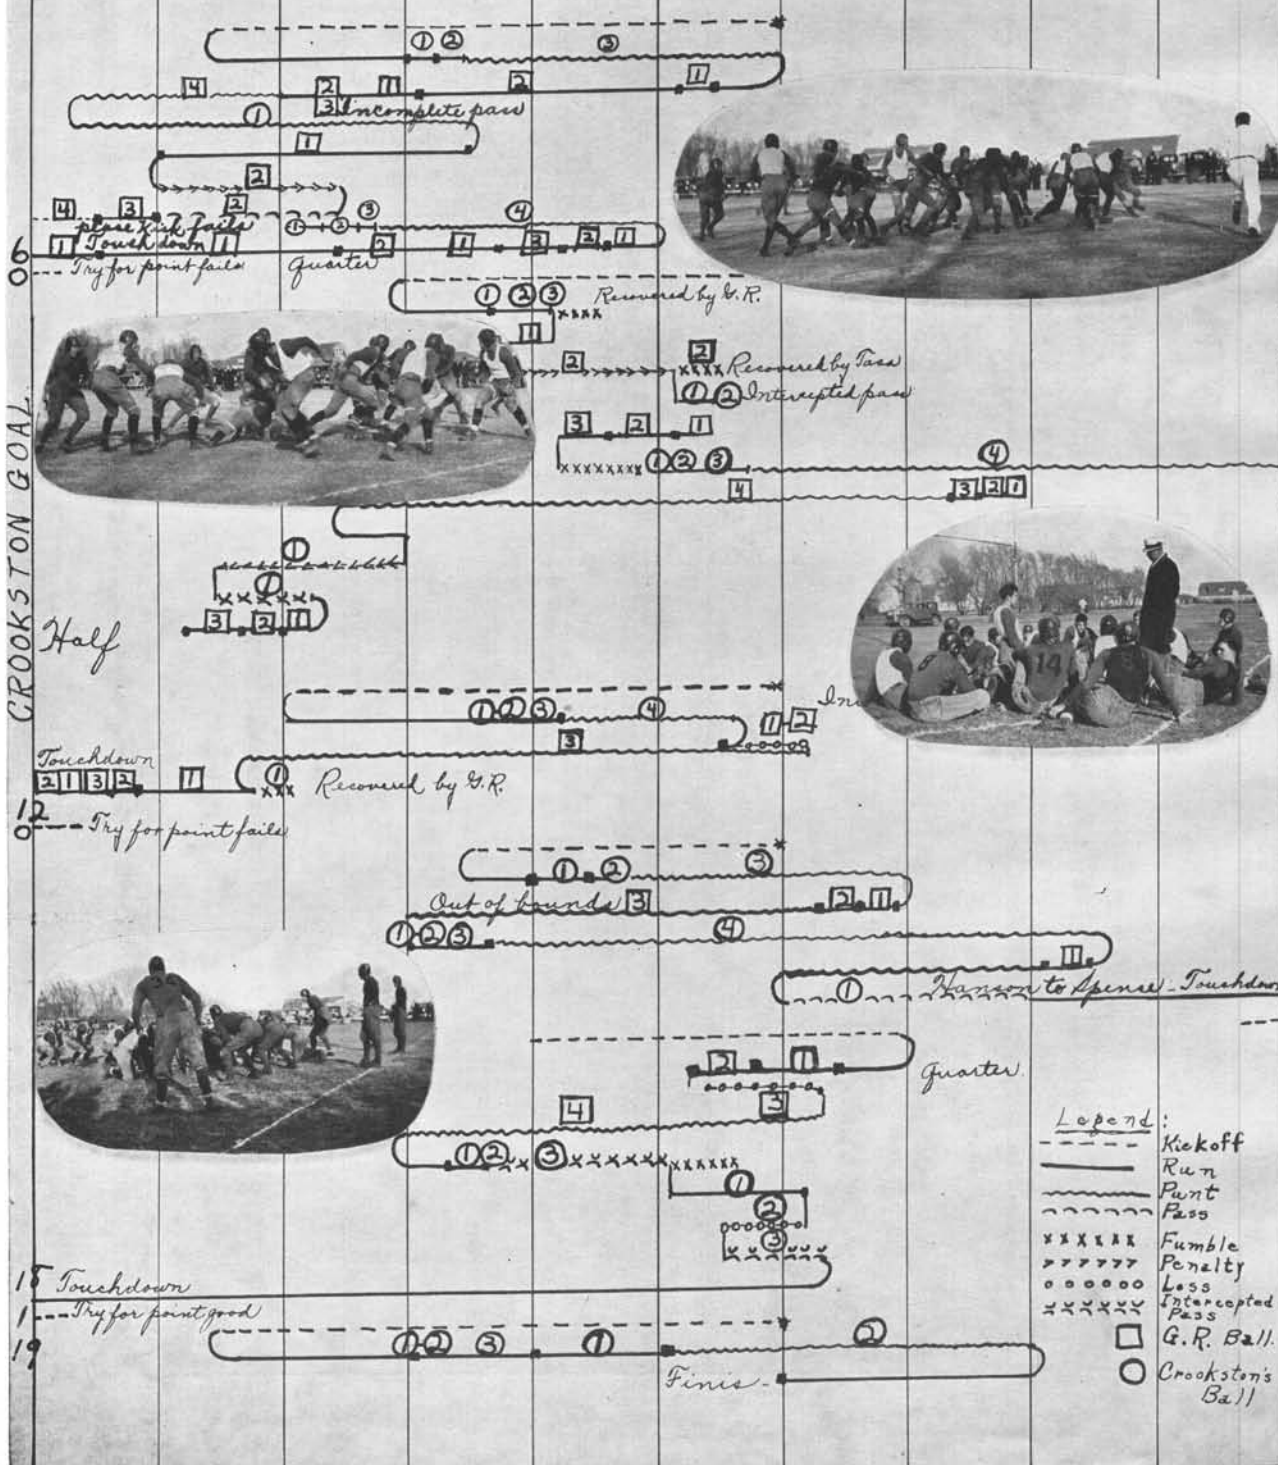 ① ② ③
4 2 1 2 1
3 Incomplete pass
①
1
2
4 3 2 ③
place kick fails ① ② ④
1 Touchdown 1 2 1 3 2 1
6
0 --- Try for point fails Quarter
① ② ③ Recovered by G.R.
1
2 2 Recovered by Tass
① ② Intercepted pass
3 2 1
① ② ③ ④
4 3 2 1
CROOKSTON GOAL
①
①
3 2 1
Half
① ② ③ ④ 1 2 In
3
Touchdown
2 1 3 2 1 ① Recovered by G.R.
12
0 --- Try for point fails
① ② ③
Out of bounds 3 2 1
① ② ③ ④
1
① Hanson to Spense - Touchdown
2 1 Quarter
4 3
① ② ③
①
②
③
18 Touchdown
1 --- Try for point good
19 ① ② ③ ① ②
Finis -
14
Legend:
Kickoff
Run
Punt
Pass
Fumble
Penalty
Loss
Intercepted
Pass
G.R. Ball.
Crookston's
Ball